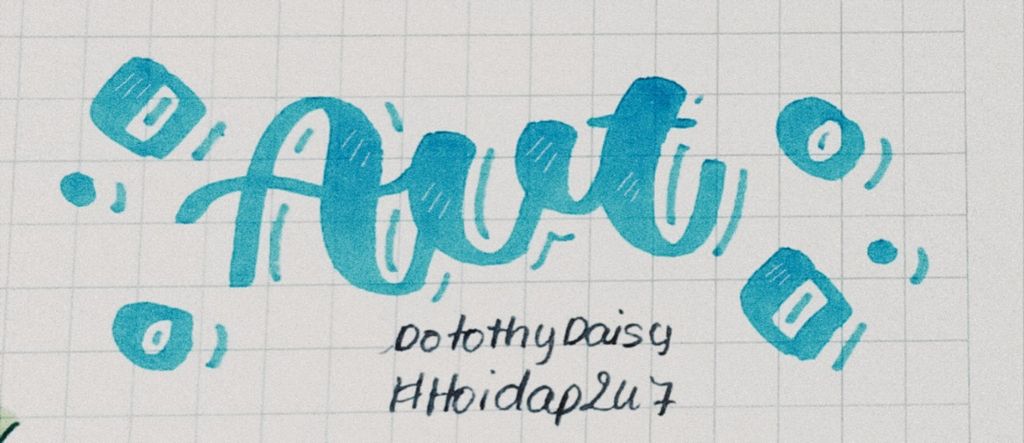 Art
DotothyDaisy
#Hoidap247